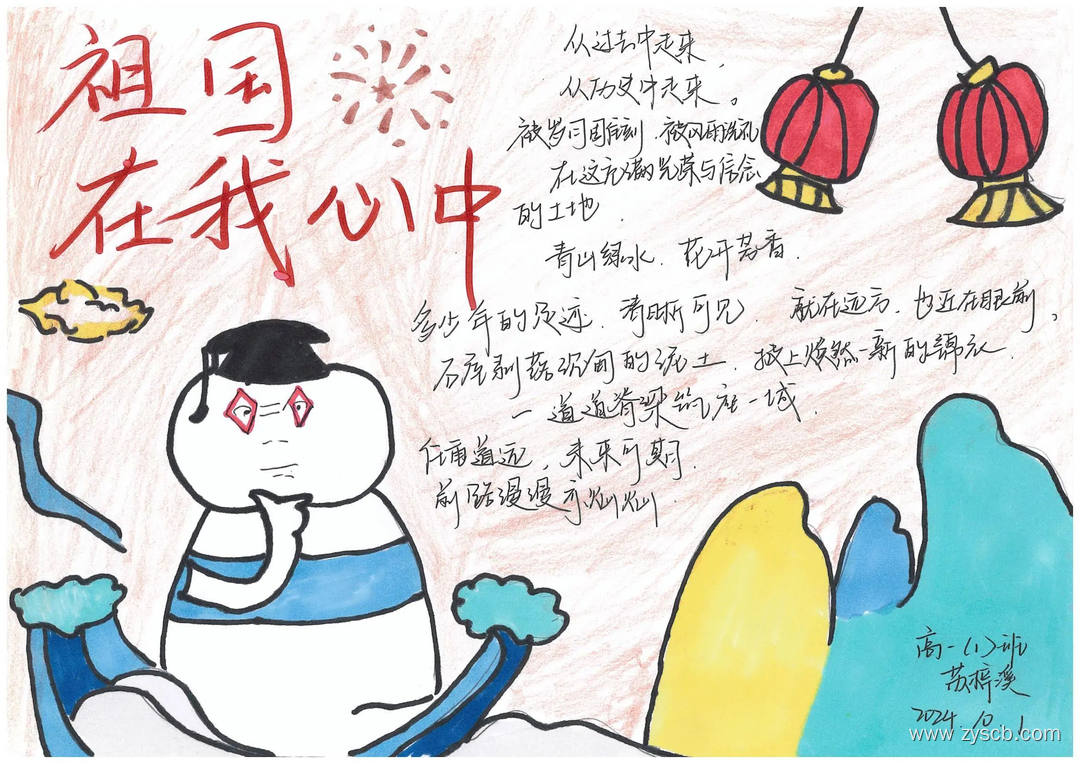 祖国
在我心中
从过去中走来,
从历史中走来。
被岁月周刻,被风雨洗礼
在这充满光荣与信念
的土地.
青山绿水.花开芳香.
多少年的足迹.清晰可见.就在远方.也近在眼前,
石崖剥落沉甸的泥土.披上焕然一新的锦衣.
一道道脊梁筑在一城.
任重道远,未来可期.
前路漫漫亦灿灿.
高一(1)班
苏梓溪
2024.10.1
www.zyscb.com